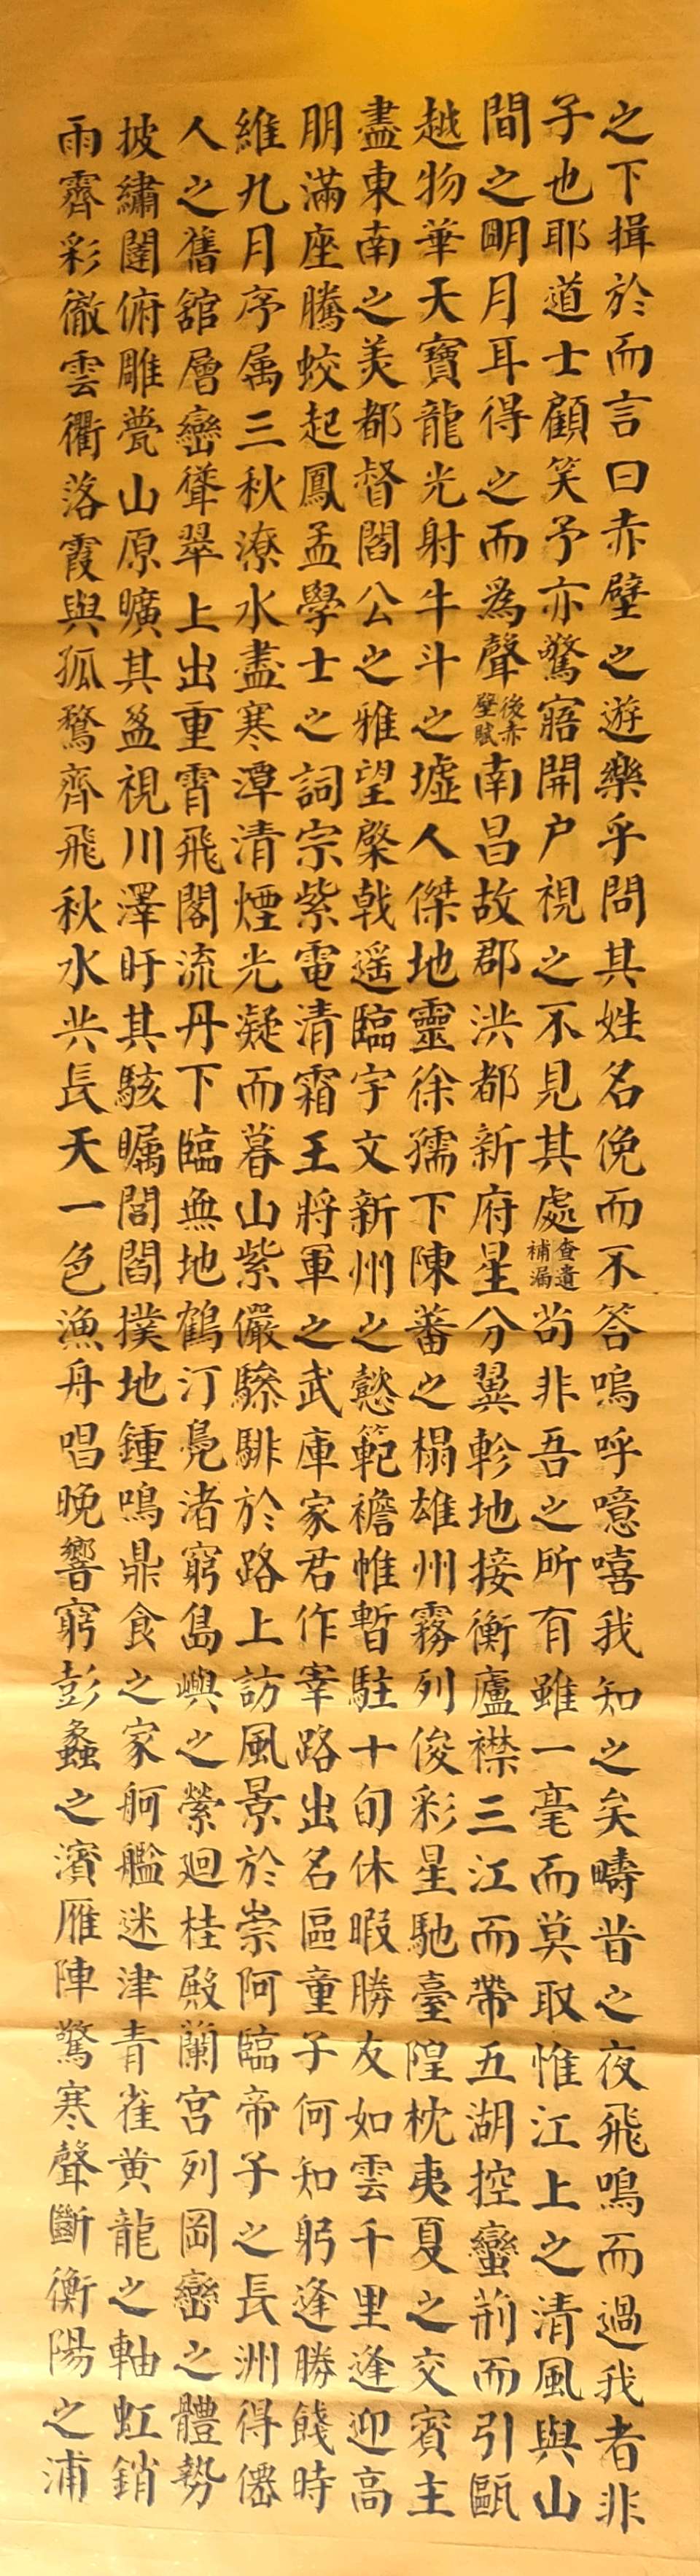 之下揖於而言曰赤壁之遊樂乎問其姓名俛而不答嗚呼噫嘻我知之矣疇昔之夜飛鳴而過我者非
子也耶道士顧笑予亦驚寤開户視之不見其處查遺補漏苟非吾之所有雖一毫而莫取惟江上之清風與山
間之明月耳得之而為聲後赤壁賦南昌故郡洪都新府星分翼軫地接衡廬襟三江而帶五湖控蠻荊而引甌
越物華天寶龍光射牛斗之墟人傑地靈徐孺下陳蕃之榻雄州霧列俊彩星馳臺隍枕夷夏之交賓主
盡東南之美都督閻公之雅望棨戟遥臨宇文新州之懿範襜帷暫駐十旬休暇勝友如雲千里逢迎高
朋滿座騰蛟起鳳孟學士之詞宗紫電清霜王將軍之武庫家君作宰路出名區童子何知躬逢勝餞時
維九月序属三秋潦水盡寒潭清煙光凝而暮山紫儼驂騑於路上訪風景於崇阿臨帝子之長洲得僊
人之舊舘層巒聳翠上出重霄飛閣流丹下臨無地鶴汀鳧渚窮島嶼之縈迴桂殿蘭宮列岡巒之體勢
披繡闥俯雕甍山原曠其盈視川澤盱其駭矚閭閻撲地鍾鳴鼎食之家舸艦迷津青雀黄龍之軸虹銷
雨霽彩徹雲衢落霞與孤鶩齊飛秋水共長天一色漁舟唱晚響窮彭蠡之濱雁陣驚寒聲斷衡陽之浦